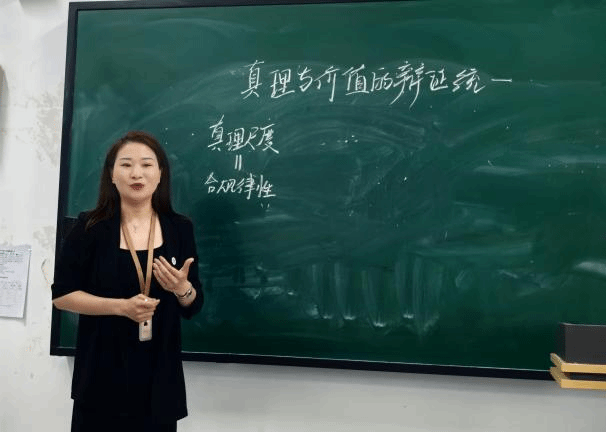 真理与价值的辩证统一
真理尺度
=
合规律性